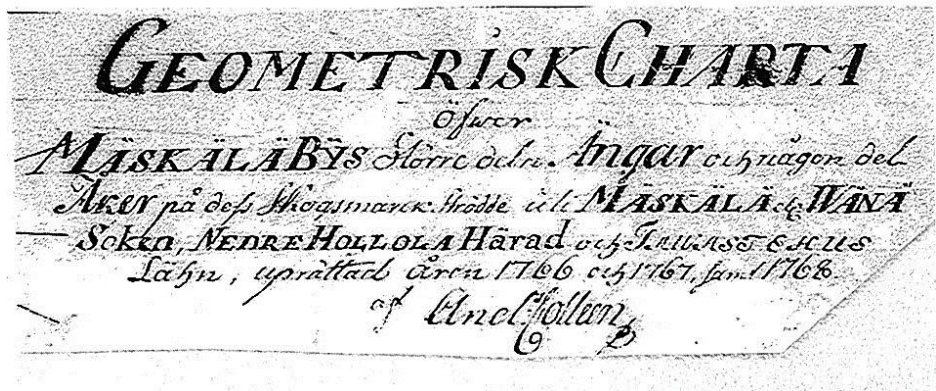 GEOMETRISK CHARTA
öfwer
MÄSKÄLÄ BŸS Större deln Ängar och någon del
ÅKER på dess Skogsmarck strödde uti MÄSKÄLÄ WÅNÄ
Soken, NEDRE HOLLOLA Härad och TAWASTEHUS
Lähn, uprättad åren 1766 och 1767, samt 1768
af